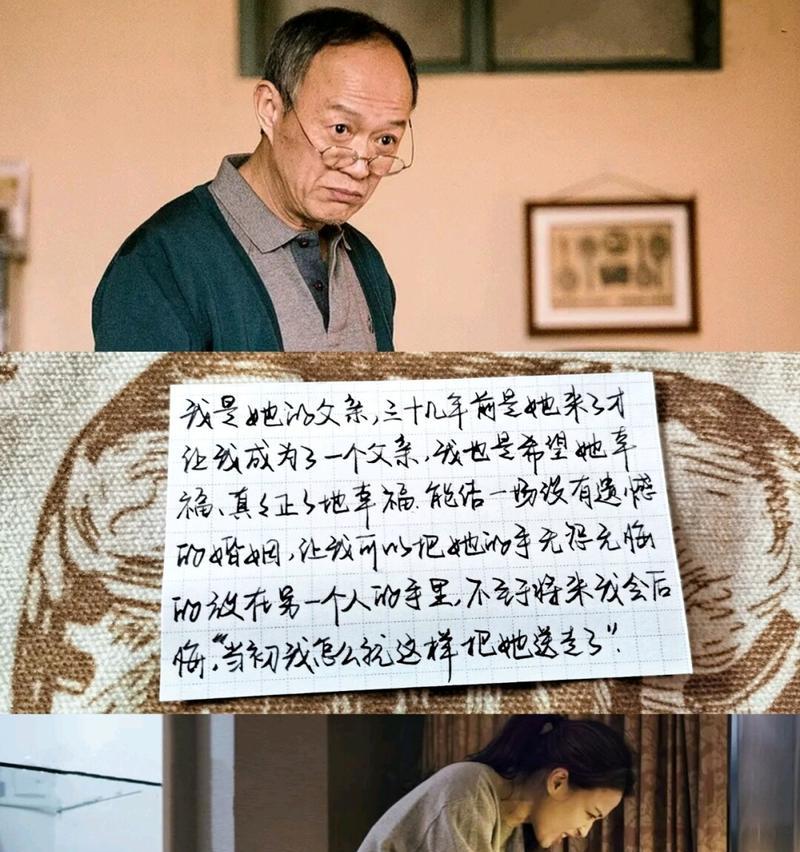 我是她的父亲,三十几年前是她来了才
让我成为了一个父亲,我也是希望她幸
福、真真正正地幸福.能结一场没有遗憾
的婚姻,让我可以把她的手无怨无悔
的放在另一个人的手里,不至于将来我会后
悔,“当初我怎么就这样把她送走了”.